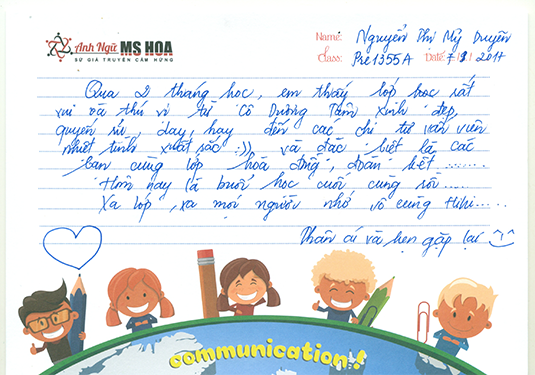 Anh Ngữ MS HOA
SỨ GIẢ TRUYỀN CẢM HỨNG
Name: Nguyễn Thị Mỹ Duyên
Class: Pre1355A Date: 7/9/2017
Qua 2 tháng học, em thấy lớp học rất
vui và thú vị từ Cô Dương Tâm xinh đẹp,
quyến rũ, dạy hay đến các chị tư vấn viên
nhiệt tình xuất sắc :)), và đặc biệt là các
bạn cùng lớp hoà đồng, đoàn kết .......
Hôm nay là buổi học cuối cùng rồi ....
Xa lớp, xa mọi người nhớ vô cùng Hihi.....
Thân ái và hẹn gặp lại
communication!